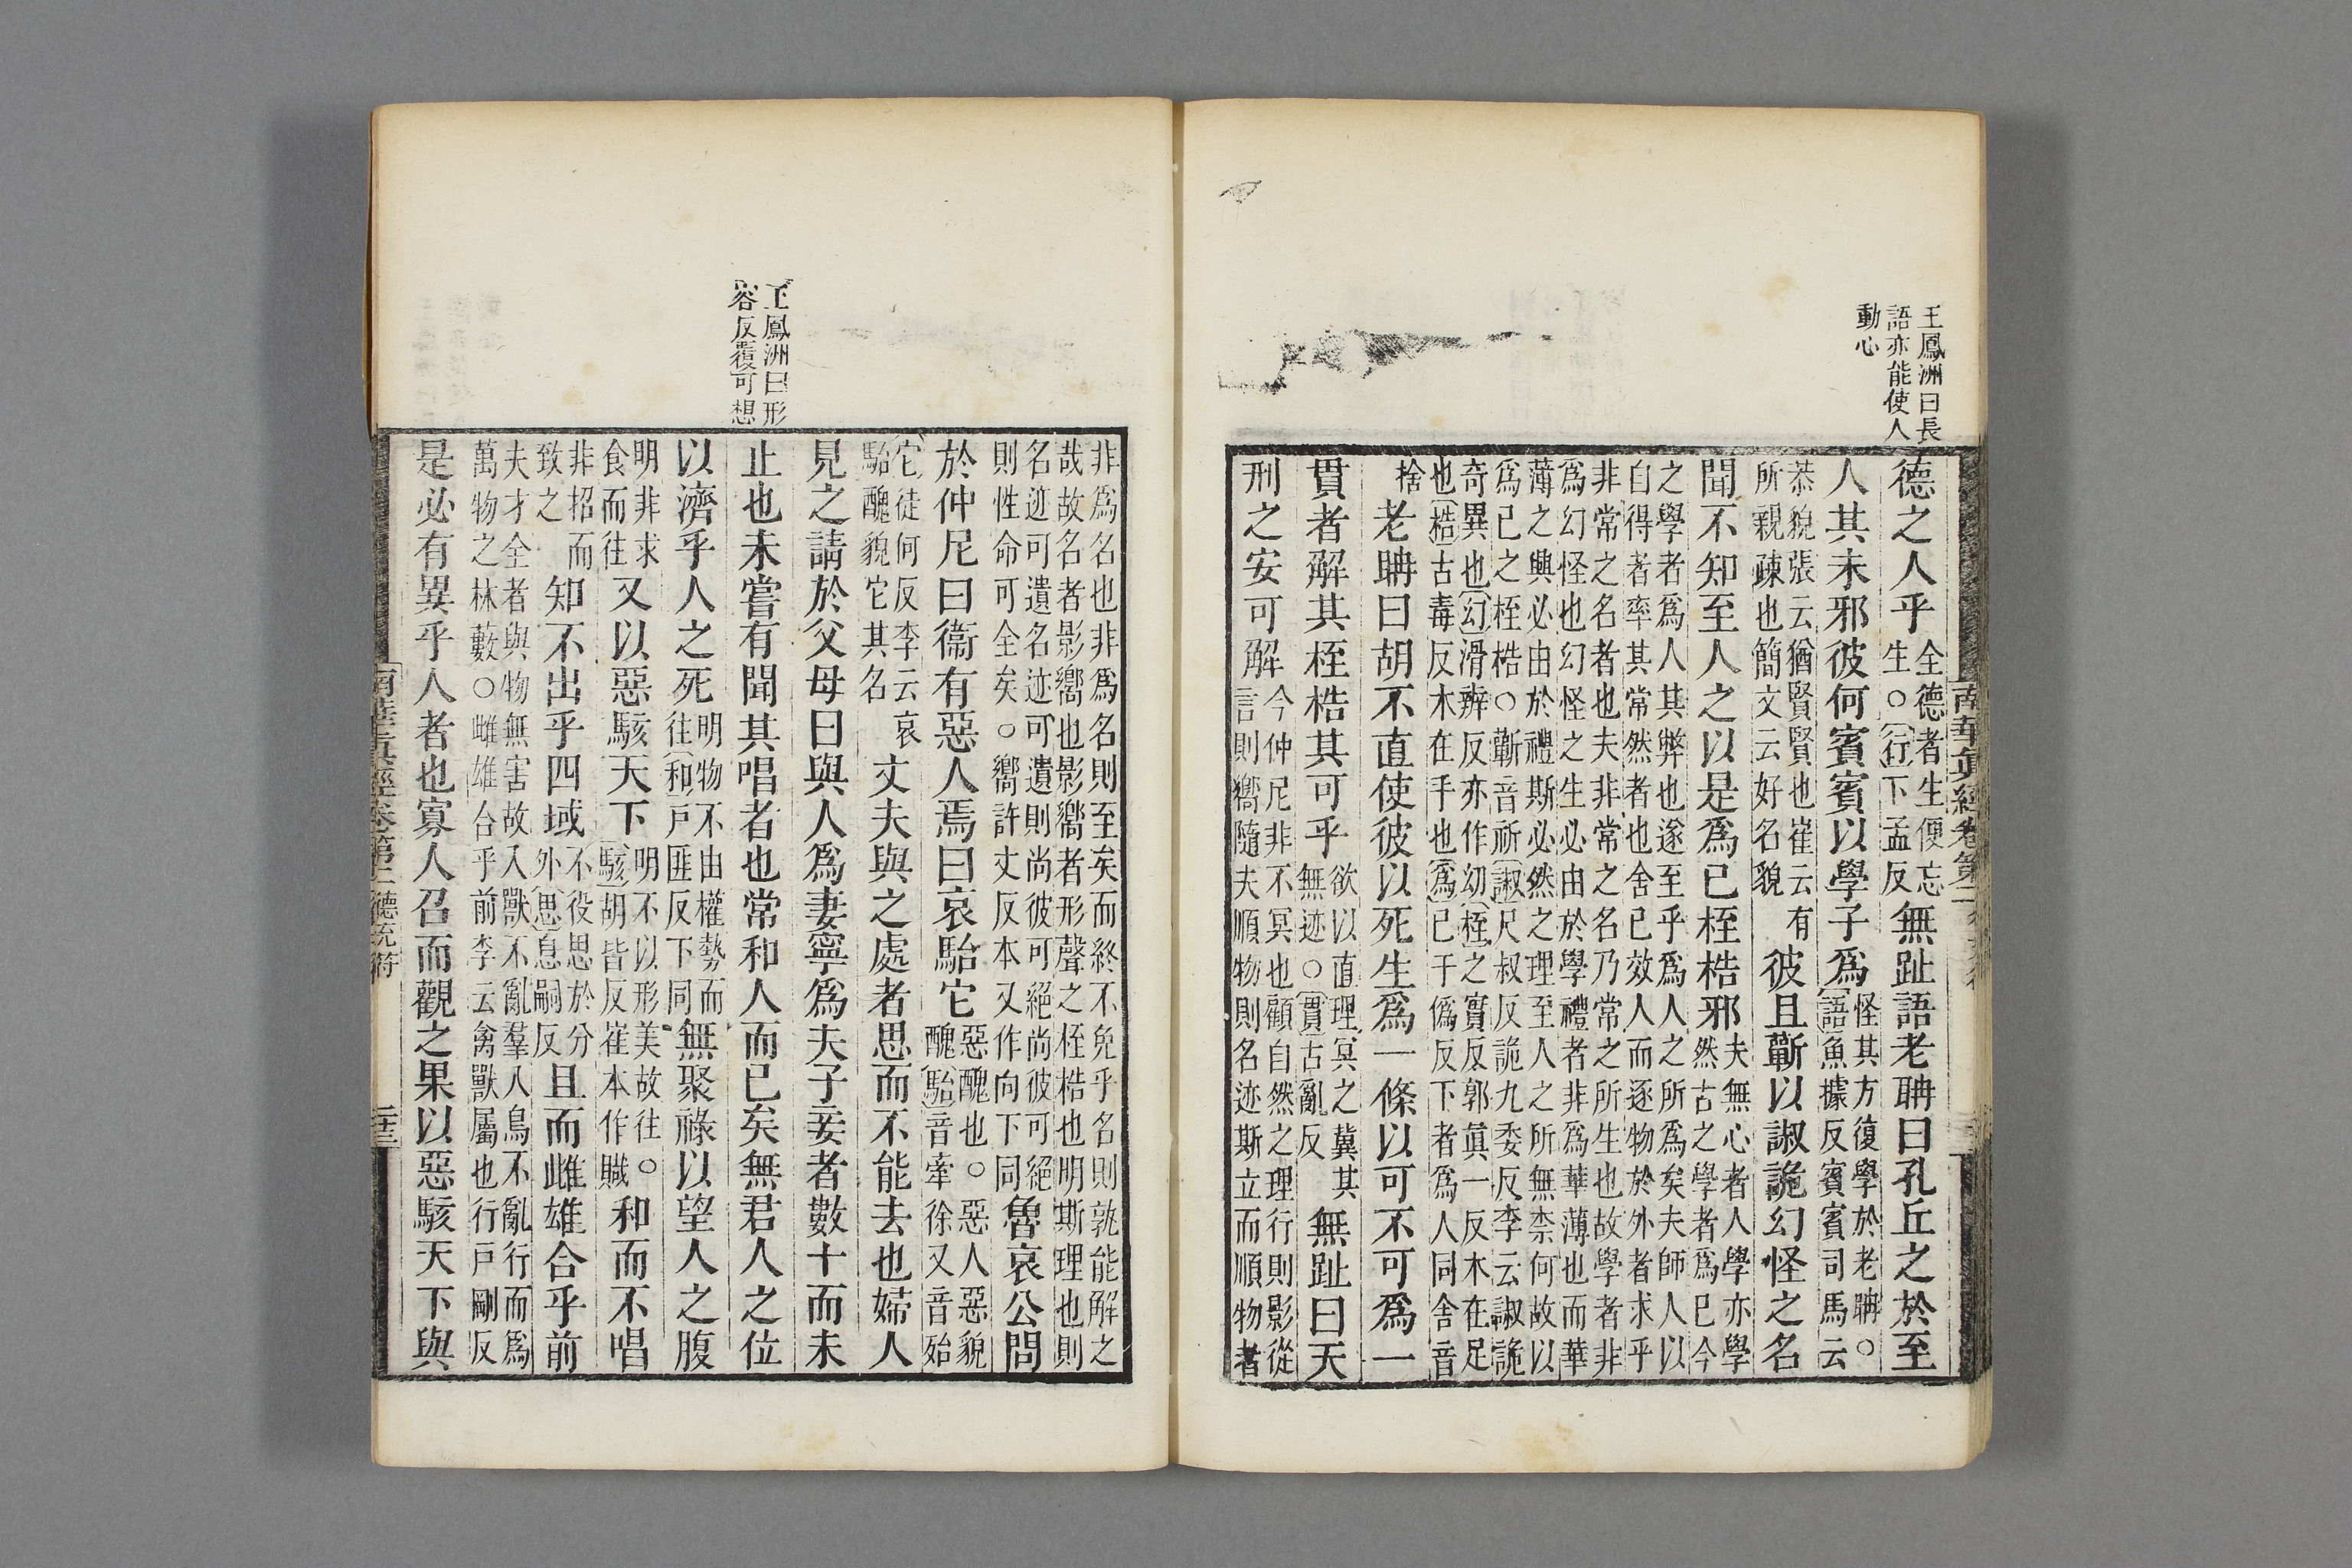 王鳳洲曰長
語亦能使人
動心
德之人乎全德者生便忘生○行下孟反無趾語老聃曰孔丘之於至
人其未邪彼何賓賓以學子爲怪其方復學於老聃○語魚據反賓賓司馬云
恭貌張云猶賢賢也崔云有所親疎也簡文云好名貌彼且蘄以諔詭幻怪之名
聞不知至人之以是爲已桎梏邪夫無心者人學亦學然古之學者爲已今
之學者爲人其弊也遂至乎爲人之所爲矣夫師人以自得者率其常然者也舍已效人而逐物於外者求乎
非常之名者也夫非常之名乃常之所生也故學者非爲幻怪也幻怪之生必由於學禮者非爲華薄也而華
薄之興必由於禮斯必然之理至人之所無柰何故以爲已之桎梏○蘄音祈諔尺叔反詭九委反李云諔詭
奇異也幻滑辨反亦作幼桎之實反郭眞一反木在足也梏古毒反木在手也爲已于僞反下者爲人同舍音
捨老聃曰胡不直使彼以死生爲一條以可不可爲一
貫者解其桎梏其可乎欲以直理冥之冀其無迹○貫古亂反無趾曰天
刑之安可解今仲尼非不冥也顧自然之理行則影從言則嚮隨夫順物則名迹斯立而順物者
南華眞經卷第二
王鳳洲曰形
容反覆可想
非爲名也非爲名則至矣而終不免乎名則孰能解之哉故名者影嚮也影嚮者形聲之桎梏也明斯理也則
名迹可遺名迹可遺則尚彼可絕尚彼可絕則性命可全矣○嚮許丈反本又作向下同魯哀公問
於仲尼曰衞有惡人焉曰哀駘它惡醜也○惡人惡貌醜駘音臺徐又音殆
它徒何反李云哀駘醜貌它其名丈夫與之處者思而不能去也婦人
見之請於父母曰與人爲妻寧爲夫子妾者數十而未
止也未嘗有聞其唱者也常和人而已矣無君人之位
以濟乎人之死明物不由權勢而往和戶匪反下同無聚祿以望人之腹
明非求食而往又以惡駭天下明不以形美故往○駭胡皆反崔本作駴和而不唱
非招而致之知不出乎四域不役思於分外思息嗣反且而雌雄合乎前
夫才全者與物無害故入獸不亂羣入鳥不亂行而爲萬物之林藪○雌雄合乎前李云禽獸屬也行戶剛反
是必有異乎人者也寡人召而觀之果以惡駭天下與
南華眞經卷第二 德充符 二十三